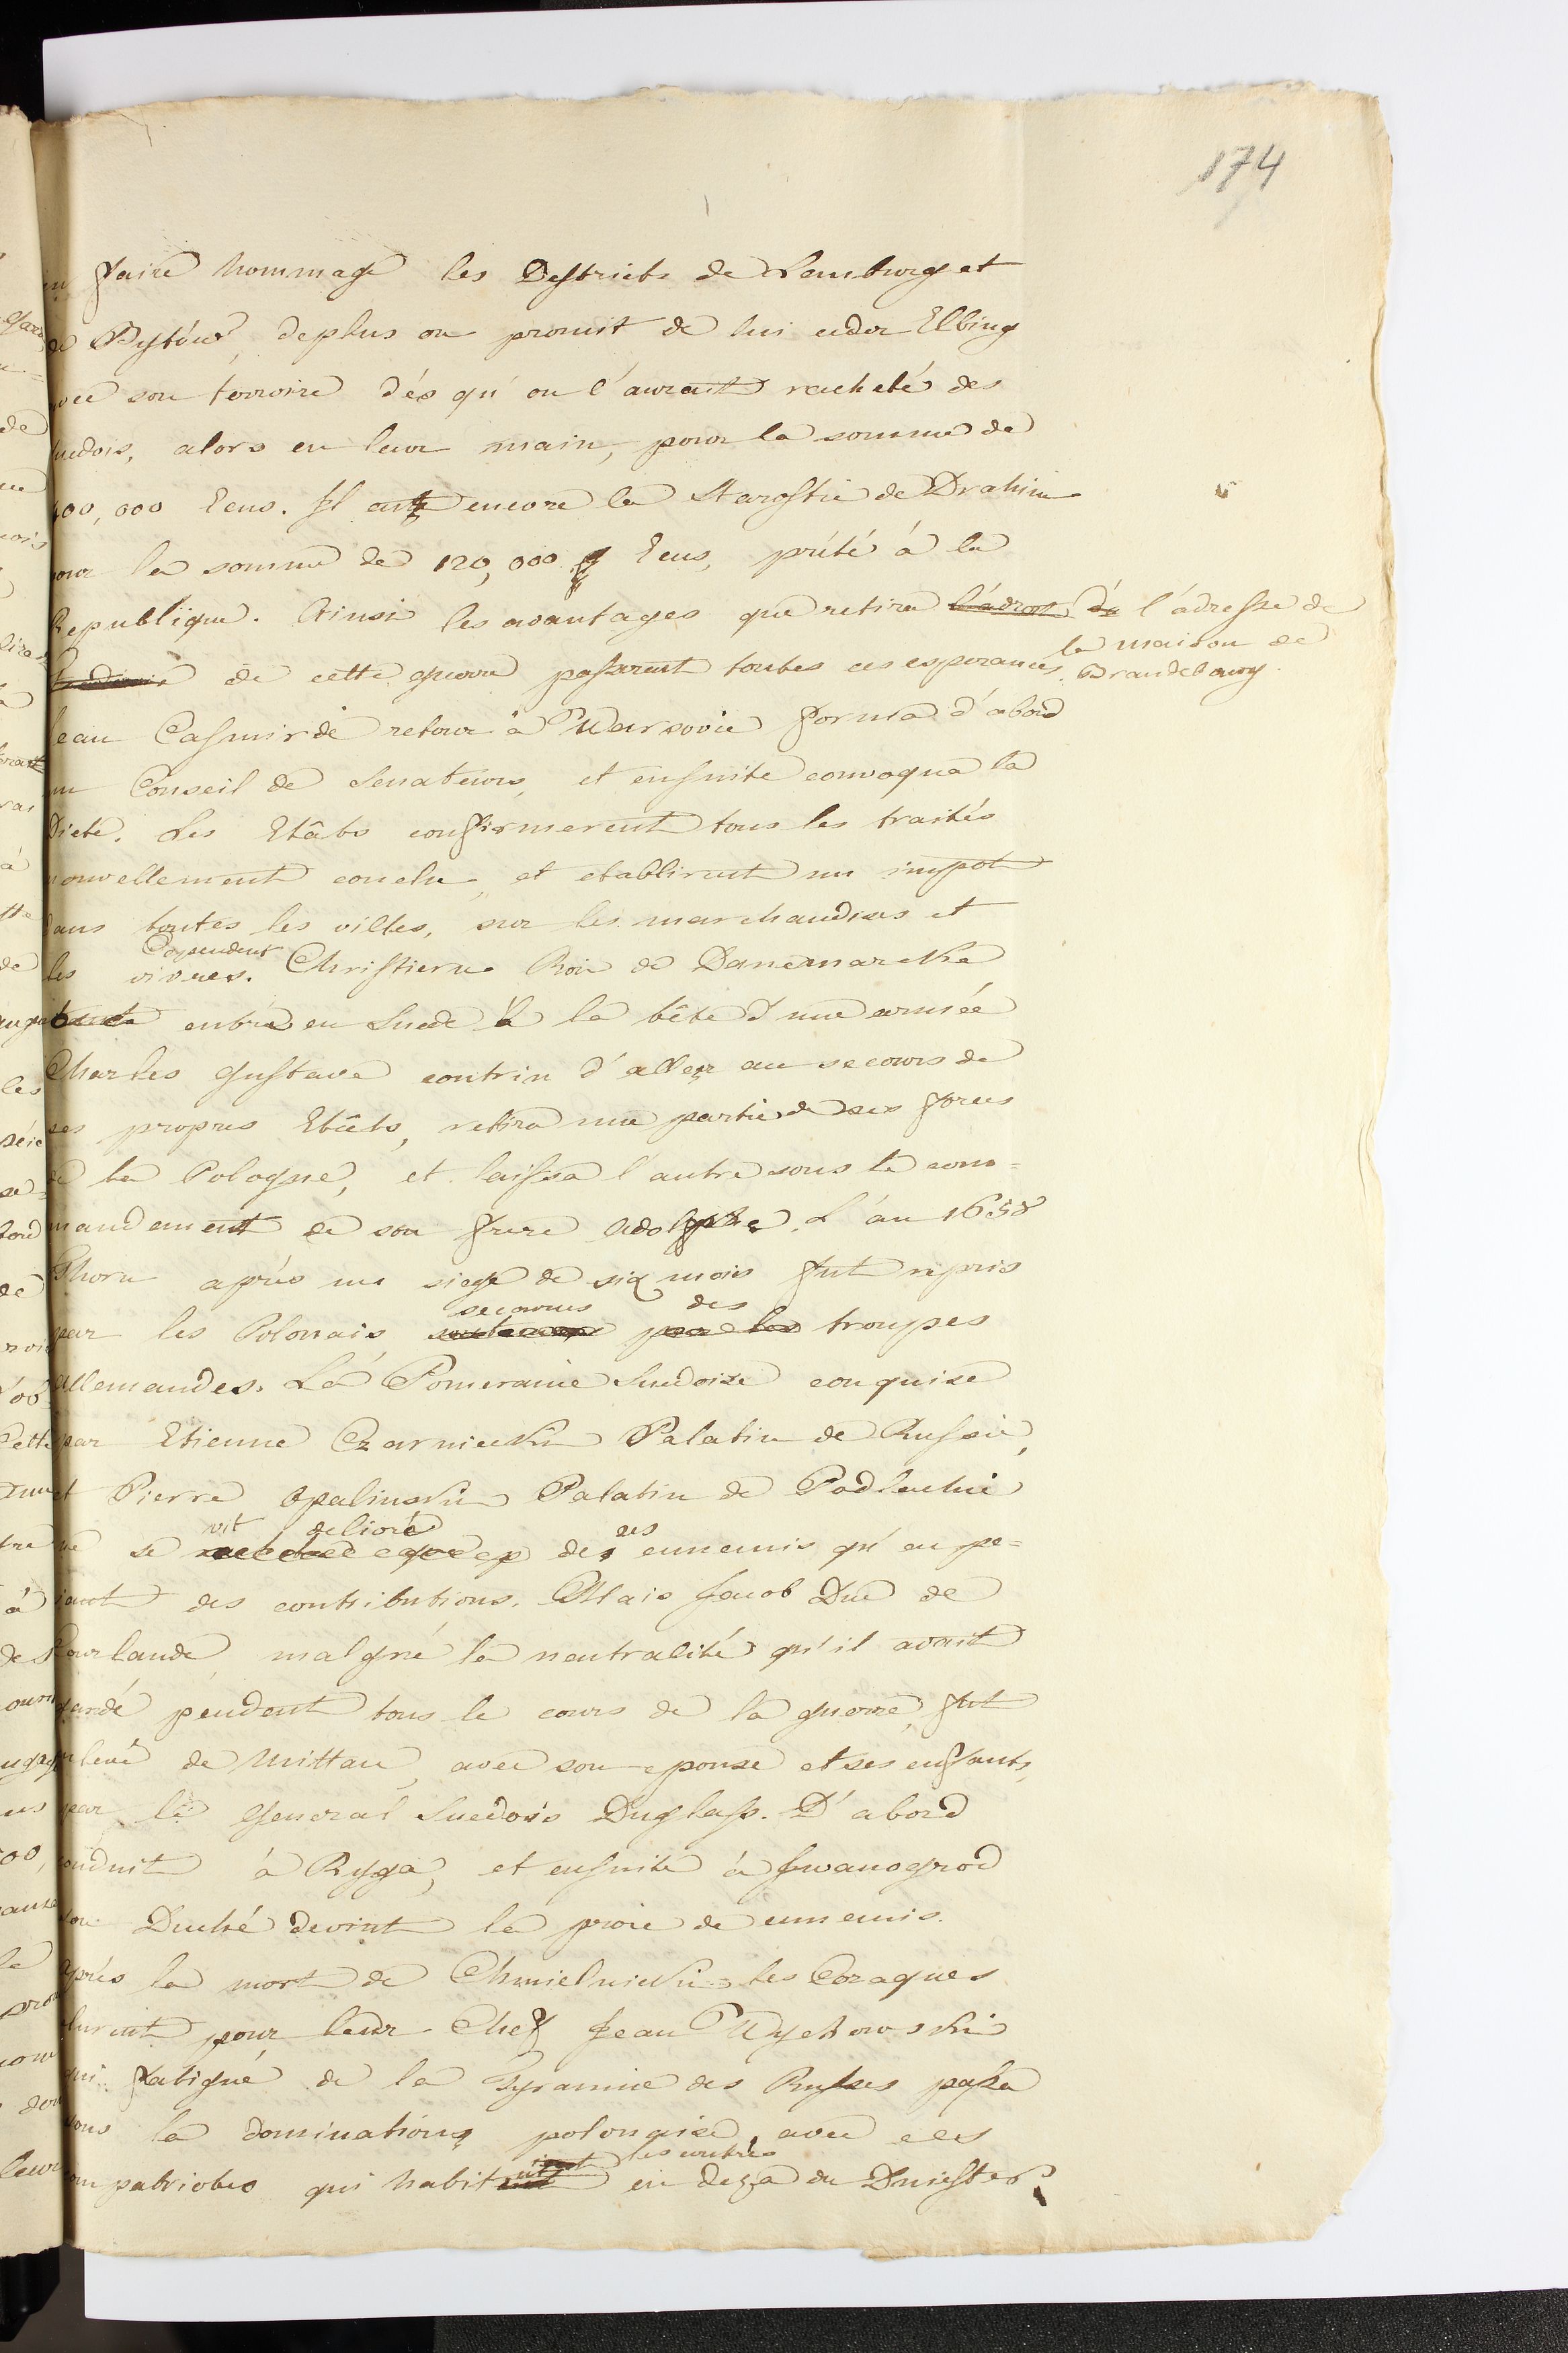 174
en faire hommage les Destricts de Lauburg et
de Bytów, deplus on promit de lui ceder Elbing
avec son terroire dés qu'on l'aurait racheté des
Suedois, alors en leur main, pour la somme de
400,000 Ecus. Il eut encore la Starostie de Drahim
pour la somme de 120,000 Ecus, prété à la
Republique. Ainsi les avantages que retira l'adres de l'adresse de
la maison de
de cette guerre passerent toutes ces esperances. Brandebourg
Jean Casimir de retour à Warsovie forma d'abord
un Conseil de Senateurs, et ensuite convoqua la
Diete. Les Etâts confirmerent tous les traités
nouvellement conclu, et etablirent un impot
dans toutes les villes, sur les marchandises et
Cependent
les vivres. Christiern Roi de Danemarcke
entra en Suede à la tête d'une armée
Charles Gustave contrin d'aller au secours de
ses propres Etâts, retira une partie de ses forces
de la Pologne, et laissa l'autre sous le com=
mandement de son frere Adolphe. L'an 1658
Thorn aprés un siege de six mois fut repris
secourus des
par les Polonais par les troupes
allemandes. La Pomeranie Suedoise conquise
par Etienne Czarniecki Palatin de Russie,
et Pierre Opalinski Palatin de Podlachie
vit delivré ses
ne se des ennemis qu'en pe=
iant des contributions. Mais Jacob Duc de
Courlande, malgré la neutralité qu'il avait
gardé pendent tous le cours de la guerre, fut
enlevé de Mittau, avec son epouse et ses enfants,
par le General Suedois Duglass. D'abord
conduit à Ryga, et ensuite à Iwanogrod
son Duché devint la proie de ennemis.
Aprés la mort de Chmielnicki les Cozaques
elurent pour leur Chef Jean Wyhowski
qui fatigué de la Tyrannie des Russes passa
sous la domination polonaise, avec ces
les contrés
compatriotes qui habit en deça du Dniester